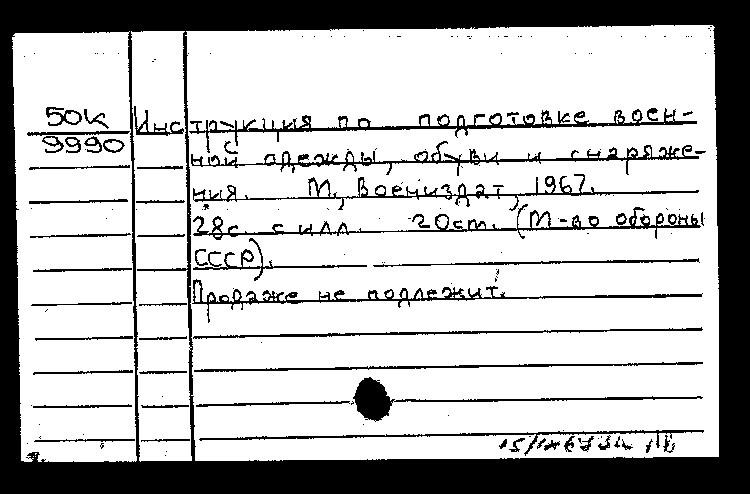 50к Инструкция по подготовке воен-
9990 ной одежды, обуви и снаряже-
ния. М., Воениздат, 1967.
28с. с илл. 20см. (М-во обороны
СССР).
Продаже не подлежит.